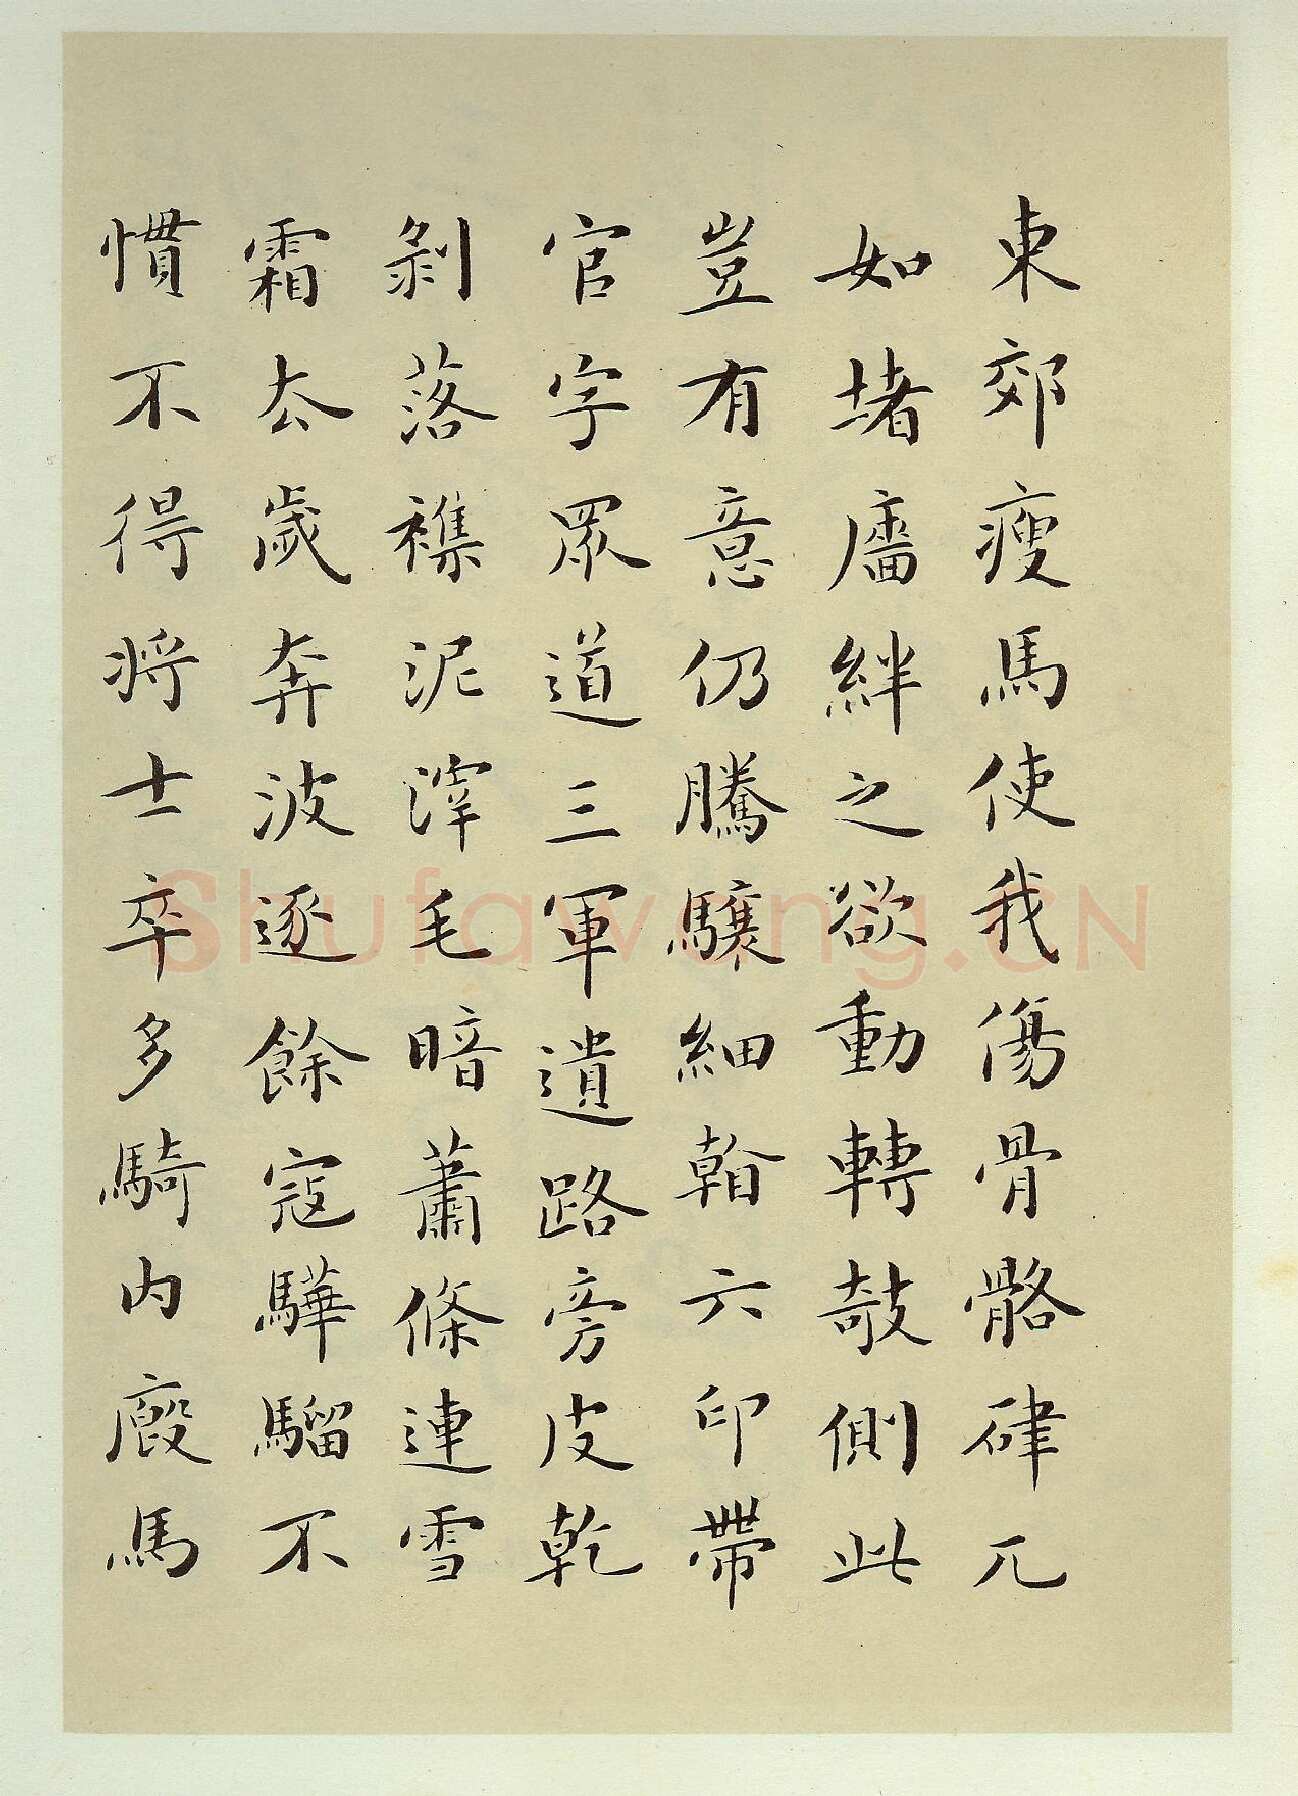 東郊瘦馬使我傷骨骼硉兀
如堵牆絆之欲動轉欹側此
豈有意仍騰驤細看六印帶
官字眾道三軍遺路旁皮乾
剝落襍泥滓毛暗蕭條連雪
霜去歲奔波逐餘寇驊騮不
慣不得將士卒多騎內廄馬
Shufawang.CN